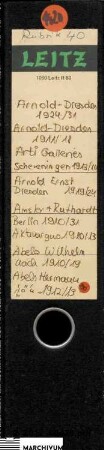 Rubrik 40
LEITZ
1080 Leitz R 80
Arnold-Dresden
1924/31
Arnold-Dresden
1911/18
Arti Galleries
Scheveningen 1913/14
Arnold Ernst
Dresden 1919/24
Amsler & Ruthardt
Berlin 1910/31
Aktuaryus 1930/33
Abels Wilhelm
Köln 1910/19
Abels Hermann
Köln 1912/13
MARCHIVUM